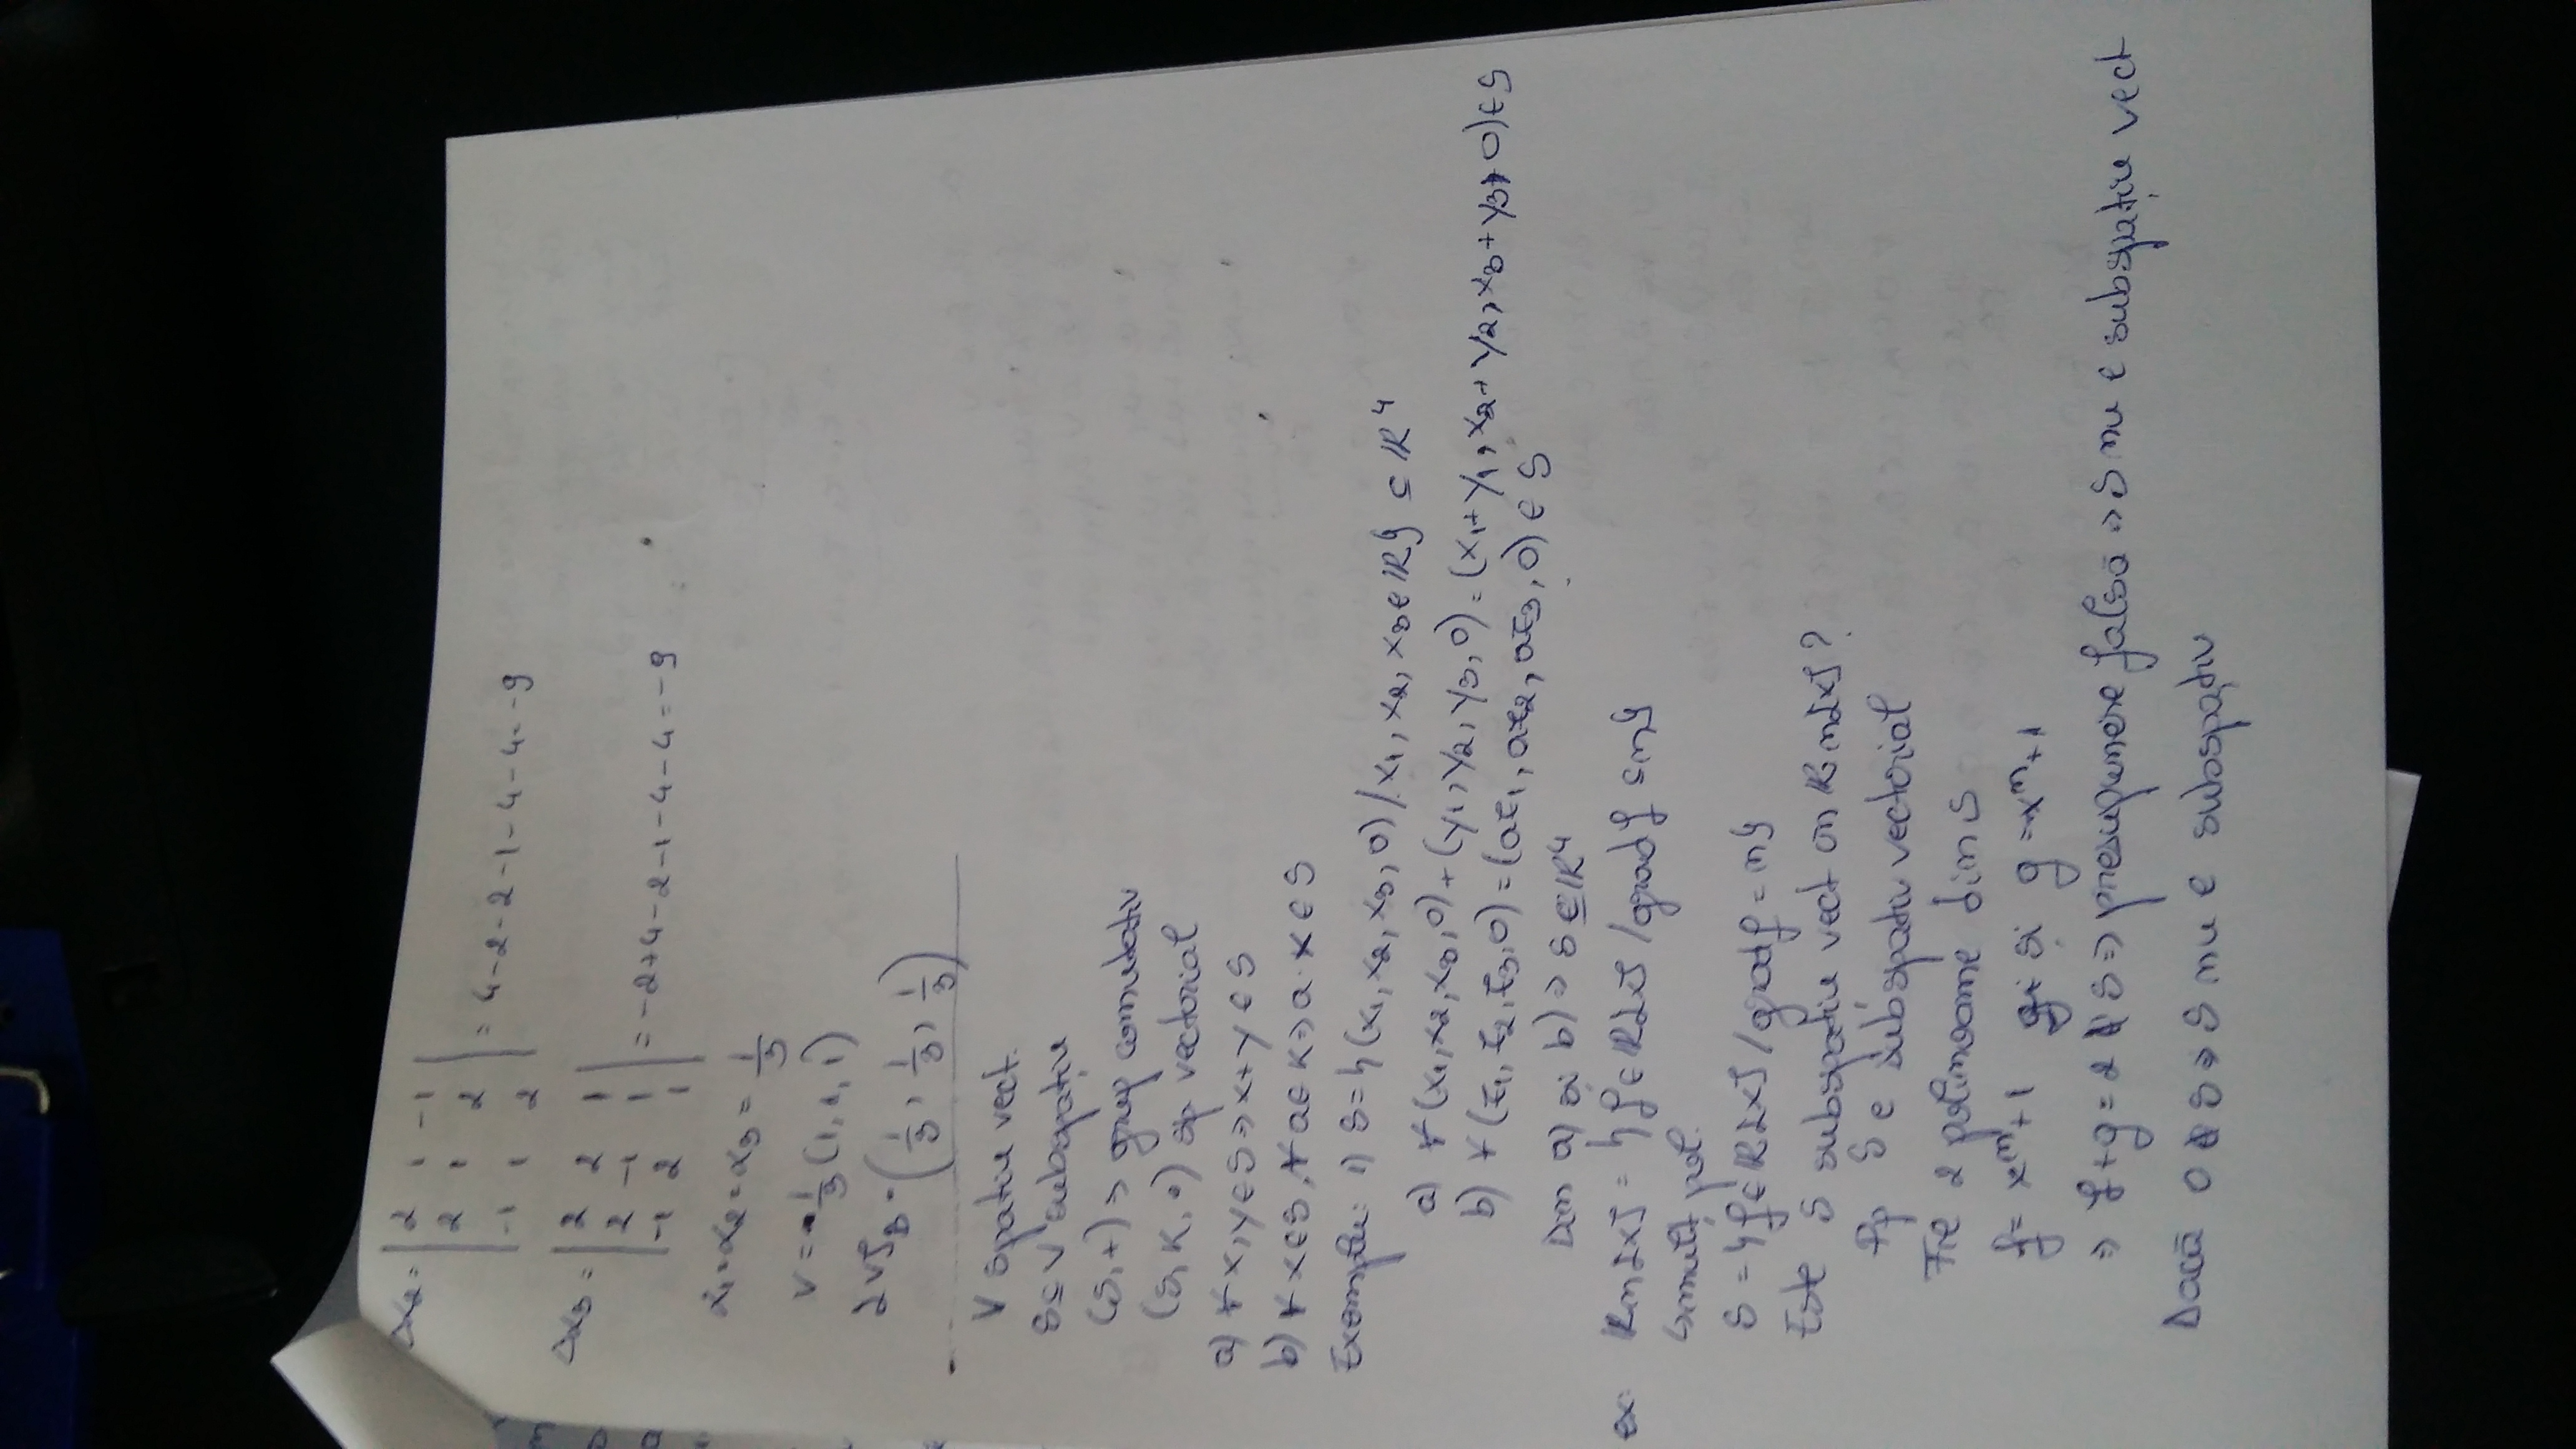 Δx2 = | 2 1 -1 |
| 2 1 2 | = 4-2-2-1-4-4=-9
| -1 1 2 |
Δx3 = | 2 2 1 |
| 2 -1 1 | = -2+4-2-1-4-4=-9
| -1 2 1 |
x1=x2=x3=1/3
v=1/3(1,1,1)
[v]B=(1/3, 1/3, 1/3)
V spatiu vect.
S⊆V subspațiu
(S,+) → grup comutativ
(S,K,·) sp vectorial
a) ∀ x,y∈S⇒x+y∈S
b) ∀ x∈S,∀a∈K⇒a·x∈S
Exemplu: 1) S={(x1,x2,x3,0)/x1,x2,x3∈R} ⊆ R⁴
a) ∀(x1,x2,x3,0)+(y1,y2,y3,0)=(x1+y1,x2+y2,x3+y3,0)∈S
b) ∀(z1,z2,z3,0)=(az1,az2,az3,0)∈S
Din a) și b)⇒S⊆R⁴
ex: Rn[x]={f∈R[x]/grad f≤n}
↳ mulț pol.
S={f∈R[x]/grad f=n}
Este S subspațiu vect în Rn[x]?
Pp S e subspatiu vectorial
Fie 2 polinoame din S
f=xⁿ+1 și g=-xⁿ+1
⇒ f+g=2∉S⇒presupunere falsă⇒S nu e subspațiu vect
Dacă 0∉S⇒S nu e subspațiu